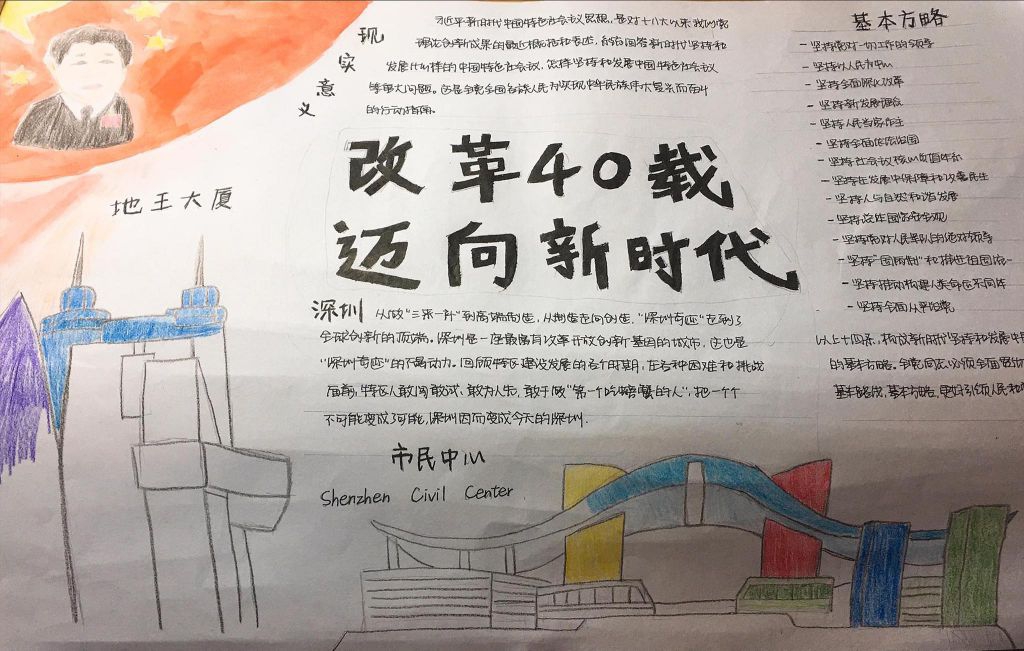 现实意义
习近平新时代中国特色社会主义思想，是对十八大以来我们党
理论创新成果的最近概括和表述，系统回答新时代坚持和
发展什么样的中国特色社会主义，怎样坚持和发展中国特色社会主义
等重大问题。这是全党全国各族人民为实现中华民族伟大复兴而奋斗
的行动指南。
改革40载
迈向新时代
地王大厦
深圳 从做"三来一补"到高端制造，从制造走向创造，"深圳奇迹"走到了
全球创新的顶端。深圳是一座最富有改革开放创新基因的城市，这也是
"深圳奇迹"的不竭动力。回顾特区建设发展的各个时期，在各种困难和挑战
面前，特区人敢闯敢试，敢为人先，敢于做"第一个吃螃蟹的人"，把一个个
不可能变成了可能，深圳因而变成今天的深圳.
市民中心
Shenzhen Civil Center
基本方略
- 坚持党对一切工作的领导
- 坚持以人民为中心
- 坚持全面深化改革
- 坚持新发展理念
- 坚持人民当家作主
- 坚持全面依法治国
- 坚持社会主义核心价值体系
- 坚持在发展中保障和改善民生
- 坚持人与自然和谐发展
- 坚持总体国家安全观
- 坚持党对人民军队的绝对领导
- 坚持"一国两制"和推进祖国统一
- 坚持推动构建人类命运共同体
- 坚持全面从严治党
以上十四条，构成新时代坚持和发展中
的基本方略。全党同志必须全面贯彻
基本路线，基本方略，更好引领人民和